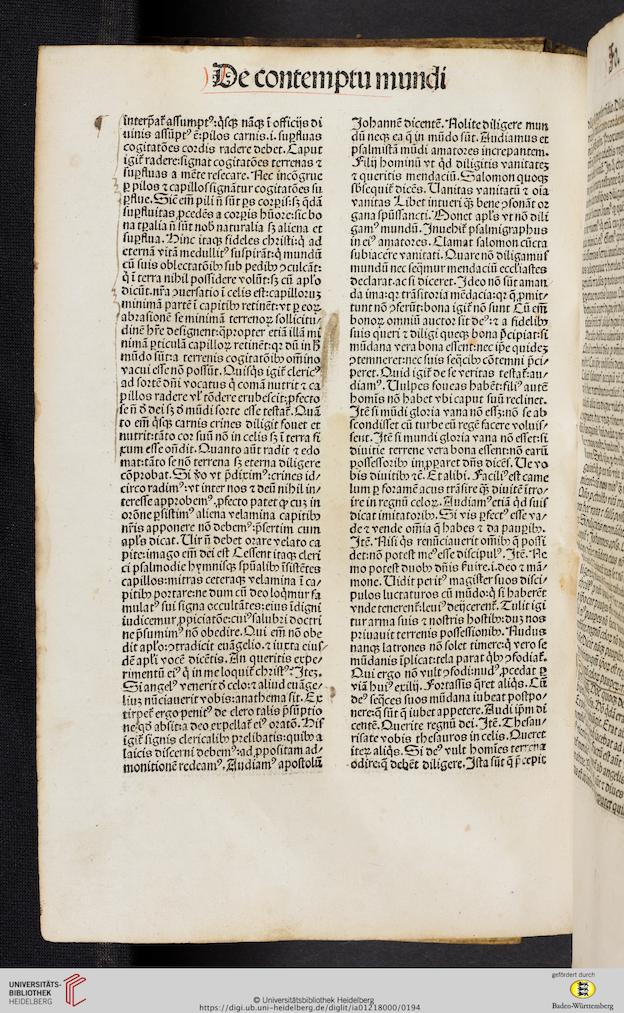 De contemptu mundi
interp̃at᷒ assumptꝰ: q̃sq̃ nãq̃ ĩ officijs di
uinis assũptꝰ ẽ: pilos carnis .i. suꝑfluas
cogitatões cordis radere debet. Caput
igit᷒ radere: signat cogitatões terrenas ⁊
suꝑfluas a mẽte resecare. Nec incõgrue
ꝑ pilos ⁊ capillos signãtur cogitatões su
ꝑflue. Sic̃ em̃ pili ñ sũt ꝑs corꝑis: sꝫ q̃dã
suꝑfluitas ꝓcedẽs a corꝑis hũore: sic bo
na tꝑalia ñ sũt nob̃ naturalia sꝫ aliena et
suꝑflua. Hinc itaqꝫ fideles christi: q̃ ad
eternã vitã medullitꝰ suspirãt: q̃ mundũ
cũ suis oblectatõibꝰ sub pedibꝰ ꝯculcãt:
q̃ ĩ terra nihil possidere volũt: sꝫ cũ apl̃o
dicũt. nr̃a ꝯuersatio ĩ celis est: capilloruꝫ
minimã partẽ ĩ capitibꝰ retinẽt: vt ꝑ eoꝝ
abrasionẽ se minimã terrenoꝝ sollicitu⸗
dinẽ hr̃e designent: q̃ꝓpter etiã illã mi
nimã ꝑticulã capilloꝝ retinẽt: qꝛ dũ in hꝰ
mũdo sũt: a terrenis cogitatõibꝰ om̃ino
vacui esse nõ possũt. Quisq̃s igit᷒ clericꝰ
ad sortẽ dñi vocatus q̃ comã nutrit ⁊ ca
pillos radere vl᷒ tõdere erubescit: ꝓfecto
se ñ ð dei sꝫ ð mũdi sorte esse testat᷒. Quã
to em̃ q̃sqꝫ carnis crines diligit fouet et
nutrit: tãto cor suũ nõ in celis sꝫ ĩ terra fi
xum esse oñdit. Quanto aũt radit ⁊ edo
mat: tãto se nõ terrena sꝫ eterna diligere
cõprobat. Si ꝟo vt p̃diximꝰ: crines id⸗
circo radimꝰ: vt inter nos ⁊ deũ nihil in⸗
teresse approbemꝰ, ꝓfecto patet qꝫ cuꝫ in
orõne ꝑsistimꝰ aliena velamina capitibꝰ
nr̃is apponere nõ debemꝰ: p̃sertim cum
apl̃s dicat. Uir ñ debet orare velato ca
pite: imago em̃ dei est Cessent itaqꝫ cleri
ci psalmodie hymnisqꝫ spũalibꝰ ĩsistẽtes
capillos: mitras ceteraqꝫ velamina ĩ ca⸗
pitibꝰ portare: ne dum cũ deo loq̃mur fa
mulatꝰ sui signa occultãtes: eius ĩdigni
iudicemur ꝓpiciatõe: cuiꝰ salubri doctri
ne p̃sumimꝰ nõ obedire. Qui em̃ nõ obe
dit apl̃o: ꝯtradicit euãgelio. ⁊ iuxta eius⸗
dẽ apl̃i vocẽ dicẽtis. An queritis expe⸗
rimentũ eiꝰ q̃ in me loquit᷒ christꝰ: Iteꝫ.
Si angelꝰ venerit ð celo: ⁊ aliud euãge⸗
liuꝫ nũciauerit vobis: anathema sit. Ex
tirpet᷒ ergo penitꝰ de clero talis p̃sũptio
neqꝫ absit: a deo expellat᷒ eiꝰ oratõ. His
igit᷒ signis clericalibꝰ p̃libatis: quibꝰ a
laicis discerni debemꝰ: ad ꝓpositam ad⸗
monitionẽ redeamꝰ. Audiamꝰ apostolũ
Johannẽ dicentẽ. Nolite diligere mun
dũ neqꝫ ea q̃ in mũdo sũt. Audiamus et
psalmistã mũdi amatores increpantem.
Filij hominũ vt qd̃ diligitis vanitateꝫ
⁊ queritis mendaciũ. Salomon quoqꝫ
sb̃seq̃t᷒ dicẽs. Uanitas vanitatũ ⁊ oĩa
vanitas Libet intueri qꝫ bene ꝯsonãt or
gana spũssancti. Monet apl̃s vt nõ dili
gamꝰ mundũ. Inuehit᷒ psalmigraphus
in eiꝰ amatores. Clamat salomon cũcta
subiacere vanitati. Quare nõ diligamꝰ
mundũ nec seq̃mur mendaciũ ecclesiastes
declarat. ac si diceret. Ideo nõ sũt aman
da ima: qꝛ trãsitoria mẽdacia: qꝛ q̃ ꝓmit⸗
tunt nõ ꝯferũt: bona igit᷒ nõ sunt Cũ em̃
bonoꝝ omniũ auctor sit deꝰ: ⁊ a fidelibꝰ
suis queri ⁊ diligi queqꝫ bona p̃cipiat: si
mũdana vera bona essent: nec ip̃e quideꝫ
ꝯtemneret: nec suis seq̃cibꝰ cõtemni p̃ci⸗
peret. Quid igit᷒ de se veritas testat᷒: au⸗
diamꝰ. Uulpes foueas habẽt: filiꝰ autẽ
homĩs nõ habet vbi caput suũ reclinet.
Itẽ si mũdi gloria vana nõ esꝫ: nõ se ab
scondisset cũ turbe eũ regẽ facere voluis⸗
sent. Itẽ si mundi gloria vana nõ esset: si
diuitie terrene vera bona essent: nõ earũ
possessoribꝰ imꝓꝑaret dñs dicẽs. Ue vo
bis diuitibꝰ ⁊c̃. Et alibi. Faciliꝰ est came
lum ꝑ foramẽ acus trãsire qꝫ diuitẽ ĩtro⸗
ire in regnũ celoꝝ. Audiamꝰ etiã qd̃ suis
dicat imitatoribꝰ. Si vis ꝑfectꝰ esse va⸗
de ⁊ vende om̃ia q̃ habes ⁊ da pauꝑibꝰ.
Itẽ. Nisi q̃s renũciauerit om̃ibꝰ q̃ possi
det: nõ potest meꝰ esse discipulꝰ. Itẽ. Ne
mo potest duobꝰ dñis ẜuire. i. deo ⁊ mã⸗
mone. Uidit peritꝰ magister suos disci⸗
pulos luctaturos cũ mũdo: q̃ si haberẽt
vnde tenerent᷒: leuiꝰ deijcerent᷒. Tulit igi
tur arma suis ⁊ nostris hostibꝰ: dũ nos
priuauit terrenis possessionibꝰ. Nudus
nanqꝫ latrones nõ solet timere: q̃ vero se
mũdanis ĩplicat: tela parat q̃bꝰ ꝯfodiat᷒.
Qui ergo nõ vult ꝯfodi: nudꝰ ꝓcedat ꝑ
viã huiꝰ exilij. Fortassis q̃ret aliq̃s. Cũ
deꝰ seq̃ces suos mũdana iubeat postpo⸗
nere: q̃ sũt q̃ iubet appetere. Audi ip̃m di
centẽ. Querite regnũ dei. Itẽ. Thesau⸗
risate vobis thesauros in celis. Queret
iteꝝ aliq̃s. Si deꝰ vult homĩes terrena
odire: q̃ debẽt diligere. Ista sũt q̃ p̃cepit
UNIVERSITÄTS-
BIBLIOTHEK
HEIDELBERG
© Universitätsbibliothek Heidelberg
https://digi.ub.uni-heidelberg.de/diglit/ia01218000/0194
gefördert durch
Baden-Württemberg